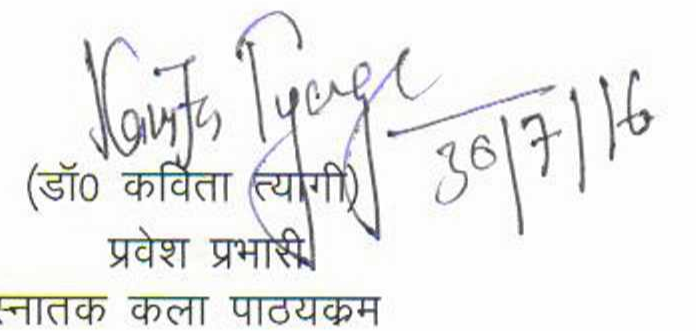 Kavita Tyagi 30/7/16
(डॉ0 कविता त्यागी)
प्रवेश प्रभारी
स्नातक कला पाठयकम